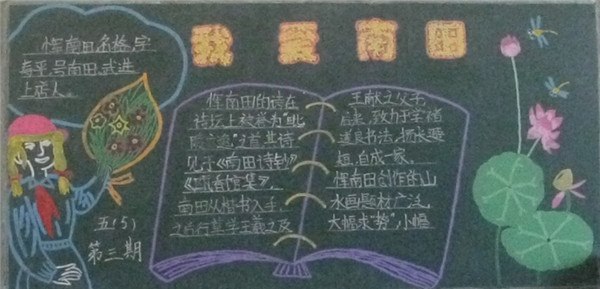 我爱南田
恽南田名格,字
寿平,号南田,武进
上店人。
恽南田的诗在
诗坛上被誉为"毗
陵六逸"之首,其诗
见于《南田诗钞》
《瓯香馆集》,
南田从楷书入手,
之后行草学王羲之及
王献之父子,
后来,致力于学褚
遂良书法,扬长避
短,自成一家。
恽南田创作的山
水画题材广泛,
大幅求"势",小幅
五(5)
第三期